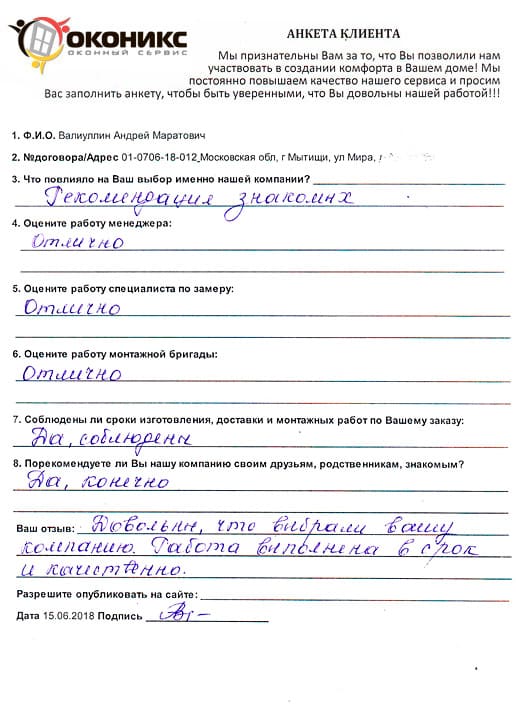 ОКОНИКС
ОКОННЫЙ СЕРВИС
АНКЕТА КЛИЕНТА
Мы признательны Вам за то, что Вы позволили нам
участвовать в создании комфорта в Вашем доме! Мы
постоянно повышаем качество нашего сервиса и просим
Вас заполнить анкету, чтобы быть уверенными, что Вы довольны нашей работой!!!
1. Ф.И.О. Валиуллин Андрей Маратович
2. №договора/Адрес 01-0706-18-012_Московская обл, г Мытищи, ул Мира,
3. Что повлияло на Ваш выбор именно нашей компании?
Рекомендация знакомих
4. Оцените работу менеджера:
Отлично
5. Оцените работу специалиста по замеру:
Отлично
6. Оцените работу монтажной бригады:
Отлично
7. Соблюдены ли сроки изготовления, доставки и монтажных работ по Вашему заказу:
Да, соблюдены
8. Порекомендуете ли Вы нашу компанию своим друзьям, родственникам, знакомым?
Да, конечно
Ваш отзыв: Довольны, что выбрали вашу
компанию. Работа выполнена в срок
и качественно.
Разрешите опубликовать на сайте:
Дата 15.06.2018 Подпись